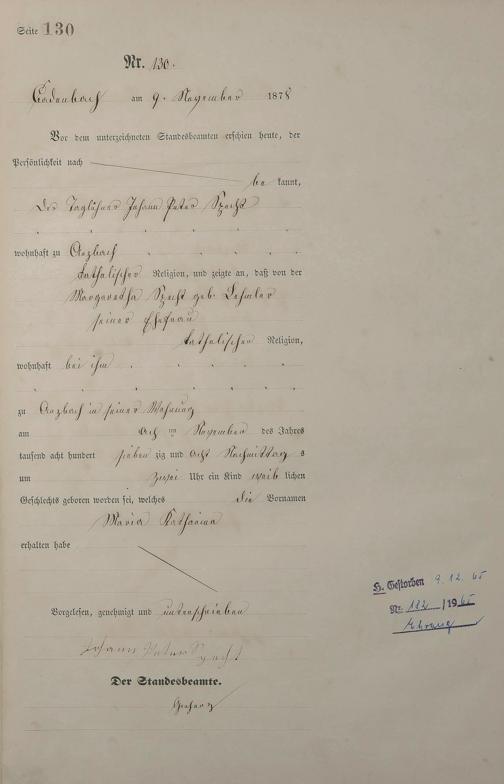 Seite 130
Nr. 130.
Cadenbach am 9. November 1878
Vor dem unterzeichneten Standesbeamten erschien heute, der
Persönlichkeit nach
be kannt,
der Taglöhner Johann Peter Specht
wohnhaft zu Arzbach
katholischer Religion, und zeigte an, daß von der
Margaretha Specht geb.
seiner Ehefrau
katholischer Religion,
wohnhaft bei ihm
zu Arzbach in seiner Wohnung
am acht ten November des Jahres
tausend acht hundert sieben zig und acht Nachmittag s
um zwei Uhr ein Kind weib lichen
Geschlechts geboren worden sei, welches die Vornamen
Maria Katharina
erhalten habe
Vorgelesen, genehmigt und unterschrieben
Johann Peter Specht
Der Standesbeamte.
H. Gestorben 9.12.65
Nr. 182 /1965